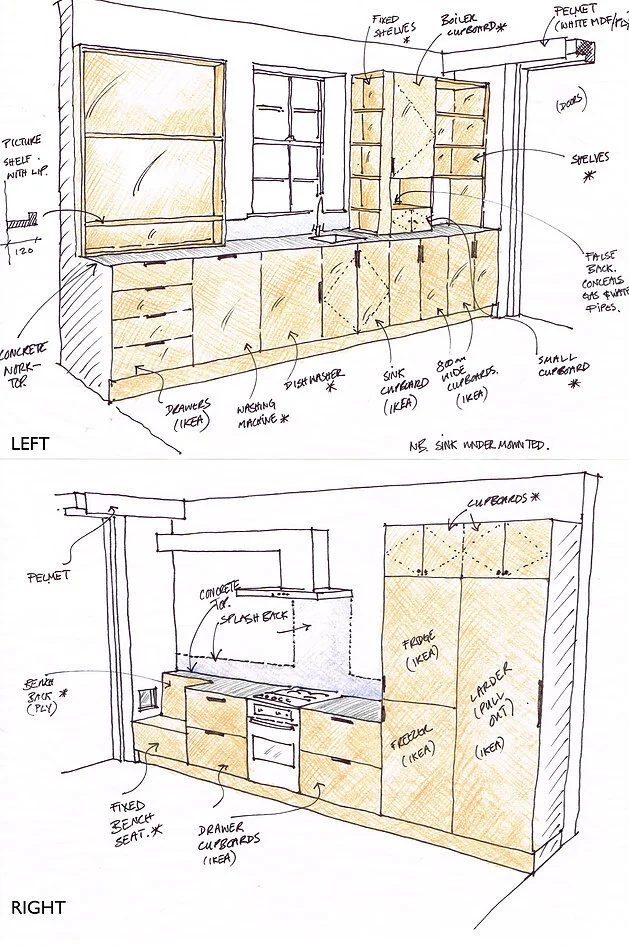 FIXED
SHELVES
*
BOILER
CUPBOARD*
PELMET
(WHITE MDF/PLY
(DOORS)
PICTURE
SHELF.
WITH LIP.
120
SHELVES
*
FALSE
BACK.
CONCEALS
GAS & WATER
PIPES.
CONCRETE
WORK-
TOP.
DRAWERS
(IKEA)
WASHING
MACHINE*
DISHWASHER
*
SINK
CUPBOARD
(IKEA)
800mm
WIDE
CUPBOARDS.
(IKEA)
SMALL
CUPBOARD
*
LEFT
NB. SINK UNDERMOUNTED.
CUPBOARDS*
PELMET
CONCRETE
TOP.
SPLASHBACK
BENCH
BACK *
(PLY)
FRIDGE
(IKEA)
LARDER
(PULL
OUT)
(IKEA)
FREEZER
(IKEA)
FIXED
BENCH
SEAT.*
DRAWER
CUPBOARDS
(IKEA)
RIGHT